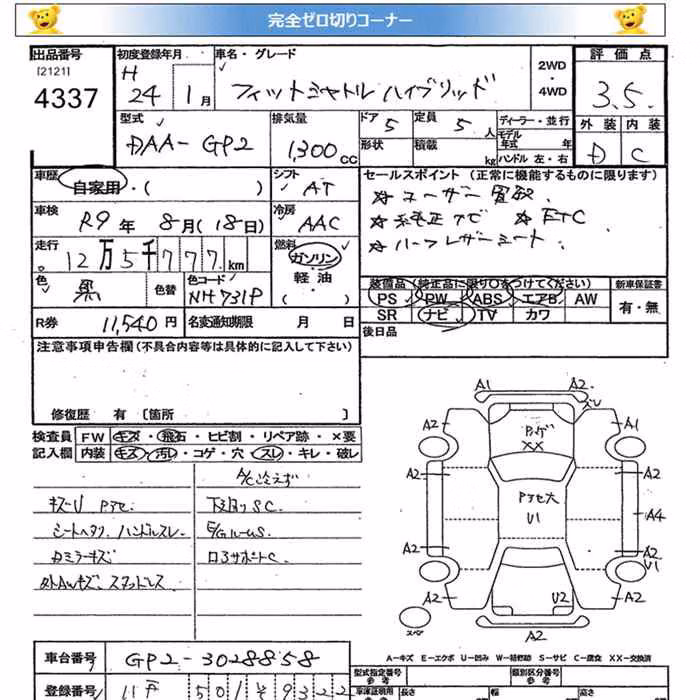 完全ゼロ切りコーナー
出品番号 初度登録年月 車名・グレード 2WD・4WD 評価点
[2121] 4337 H 24 1月 フィットシャトルハイブリッド 3.5
型式 排気量 ドア 5 定員 5人 ディーラー・並行 外装 内装
DAA-GP2 1,300cc 形状 積載 kg モデル年式 年 D C
ハンドル 左・右
車歴 自家用・( ) シフト AT セールスポイント (正常に機能するものに限ります)
☆ ユーザー買取
車検 R9年 8月(18日) 冷房 AAC ☆ 純正ナビ ☆ ETC
☆ ハーフレザーシート
走行 12万5千777km 燃料 ガソリン・軽油・( )
色 黒 色替 色コード NH731P 装備品(純正品に限り○をつけてください) 新車保証書
PS PW ABS エアB AW 有・無
SR ナビ TV カワ
R券 11,540円 名変通知期限 月 日 後日品
注意事項申告欄(不具合内容等は具体的に記入して下さい)
修復歴 有 〔箇所 〕
検査員 FW キズ・飛石・ヒビ割・リペア跡・×要
記入欄 内装 キズ・汚レ・コゲ・穴・スレ・キレ・破レ
A/C冷えず
キズU Pアセ 下廻りSC
シートヘタリ ハンドルスレ E/Gルームs
Dミラーキズ ロアサポートC
外AWキズ スタッドレス
A1 A2
A2 A1
XX
A2 A2
Pアセ大
U1 A4
A2 A2
U1
A2 U2 A2
スペア A2
A-キズ E-エクボ U-凹み W-補修跡 S-サビ C-腐食 XX-交換済
車台番号 GP2-3028858 型式指定番号 類別区分番号
登録番号 501 9322 車庫証明用 長さ 幅 高さ